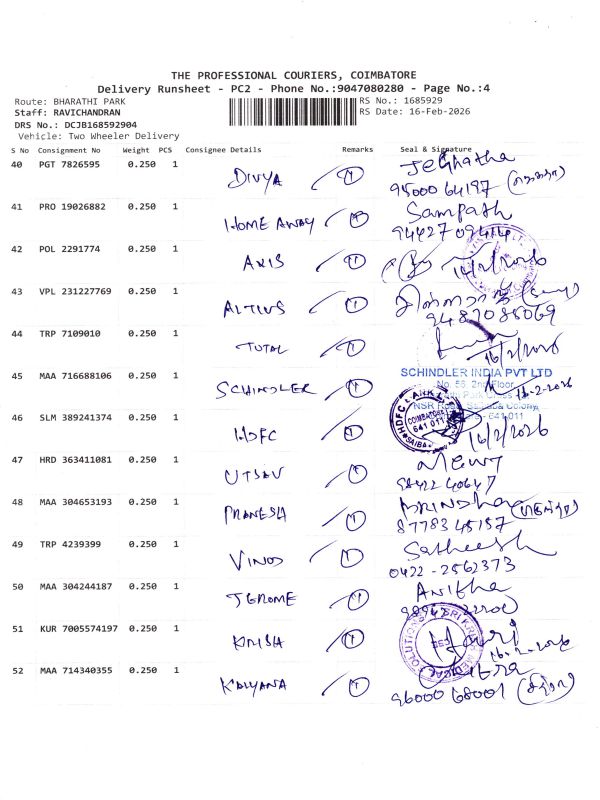 THE PROFESSIONAL COURIERS, COIMBATORE
Delivery Runsheet - PC2 - Phone No.:9047080280 - Page No.:4
Route: BHARATHI PARK
RS No.: 1685929
Staff: RAVICHANDRAN
RS Date: 16-Feb-2026
DRS No.: DCJB168592904
Vehicle: Two Wheeler Delivery
S No Consignment No Weight PCS Consignee Details Remarks Seal & Signature
40 PGT 7826595 0.250 1 DIVYA 1 Jeghatha
95000 64197
41 PRO 19026882 0.250 1 HOME AWAY 1 Sampath
94427 09414
42 POL 2291774 0.250 1 AXIS 1 16/2/2026
43 VPL 231227769 0.250 1 ALTIUS 1
9487085069
44 TRP 7109010 0.250 1 TOTAL 1
16/2/2026
45 MAA 716688106 0.250 1 SCHINDLER 1 SCHINDLER INDIA PVT LTD
No. 56, 2nd Floor
16-2-2026
NSR Road, Colony
641 011
46 SLM 389241374 0.250 1 HDFC 1 HDFC BANK COIMBATORE 641 011
16/2/2026
47 HRD 363411081 0.250 1 UTSAV 1
98422 40647
48 MAA 304653193 0.250 1 PRANESH 1 BRINDHA
87783 45157
49 TRP 4239399 0.250 1 VINOD 1 Satheesh
0422-2562373
50 MAA 304244187 0.250 1 JEROME 1 Anitha
51 KUR 7005574197 0.250 1 KRISH 1 SRI KRISH MEDICAL SOLUTIONS
16-2-2026
52 MAA 714340355 0.250 1 KALYANA 1
96000 68001 (சித்ரா)